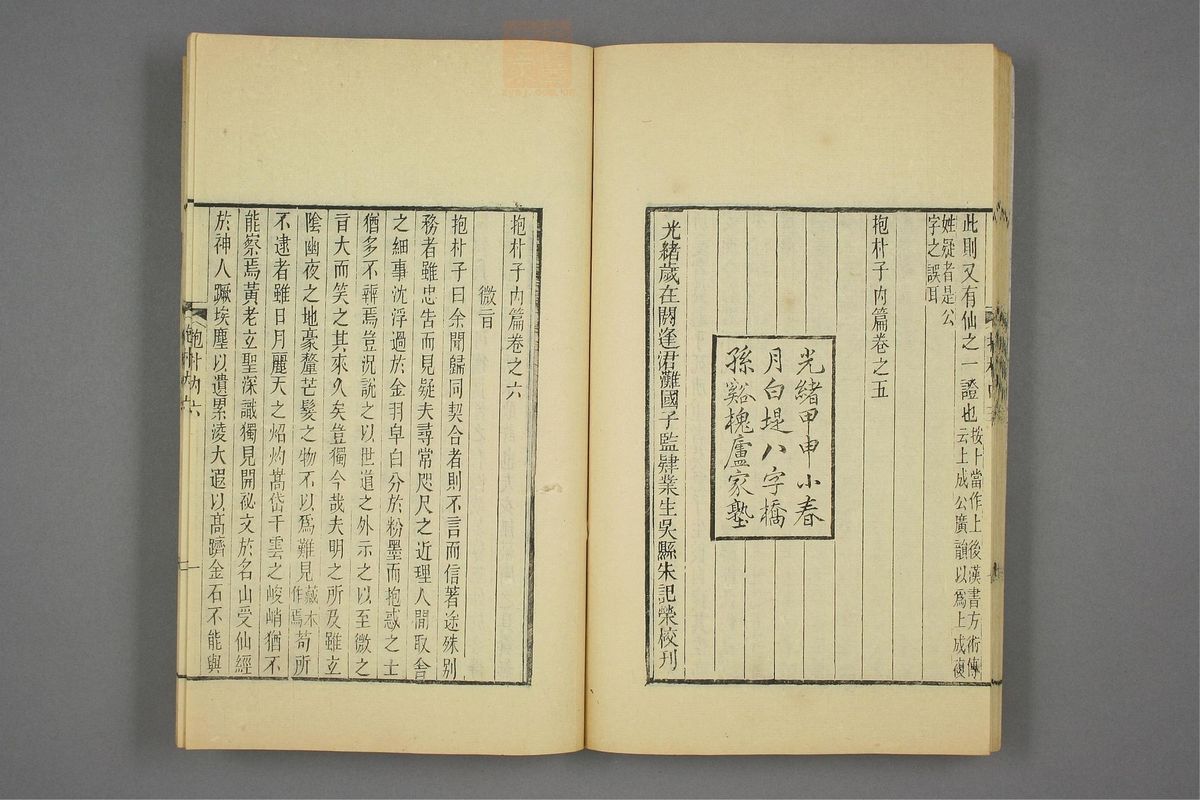 此則又有仙之一證也 按卜當作上後漢書方術傳
云上成公廣韻以爲上成複
姓疑者是公
字之誤耳
抱朴子內篇卷之五
光緒甲申小春
月白堤八字橋
孫谿槐廬家塾
光緒歲在閼逢涒灘國子監肄業生吳縣朱記榮校刊
抱朴子內篇卷之六
微旨
抱朴子曰余聞歸同契合者則不言而信著途殊別
務者雖忠告而見疑夫尋常咫尺之近理人閒取舍
之細事沈浮過於金羽皁白分於粉墨而抱惑之士
猶多不辨焉豈況說之以世道之外示之以至微之
旨大而笑之其來久矣豈獨今哉夫明之所及雖玄
陰幽夜之地豪釐芒髮之物不以爲難見 藏本作焉 苟所
不逮者雖日月麗天之炤灼嵩岱干雲之峻峭猶不
能察焉黃老玄聖深識獨見開祕文於名山受仙經
於神人蹶埃塵以遺累淩大遐以高躋金石不能與
抱朴內六
一